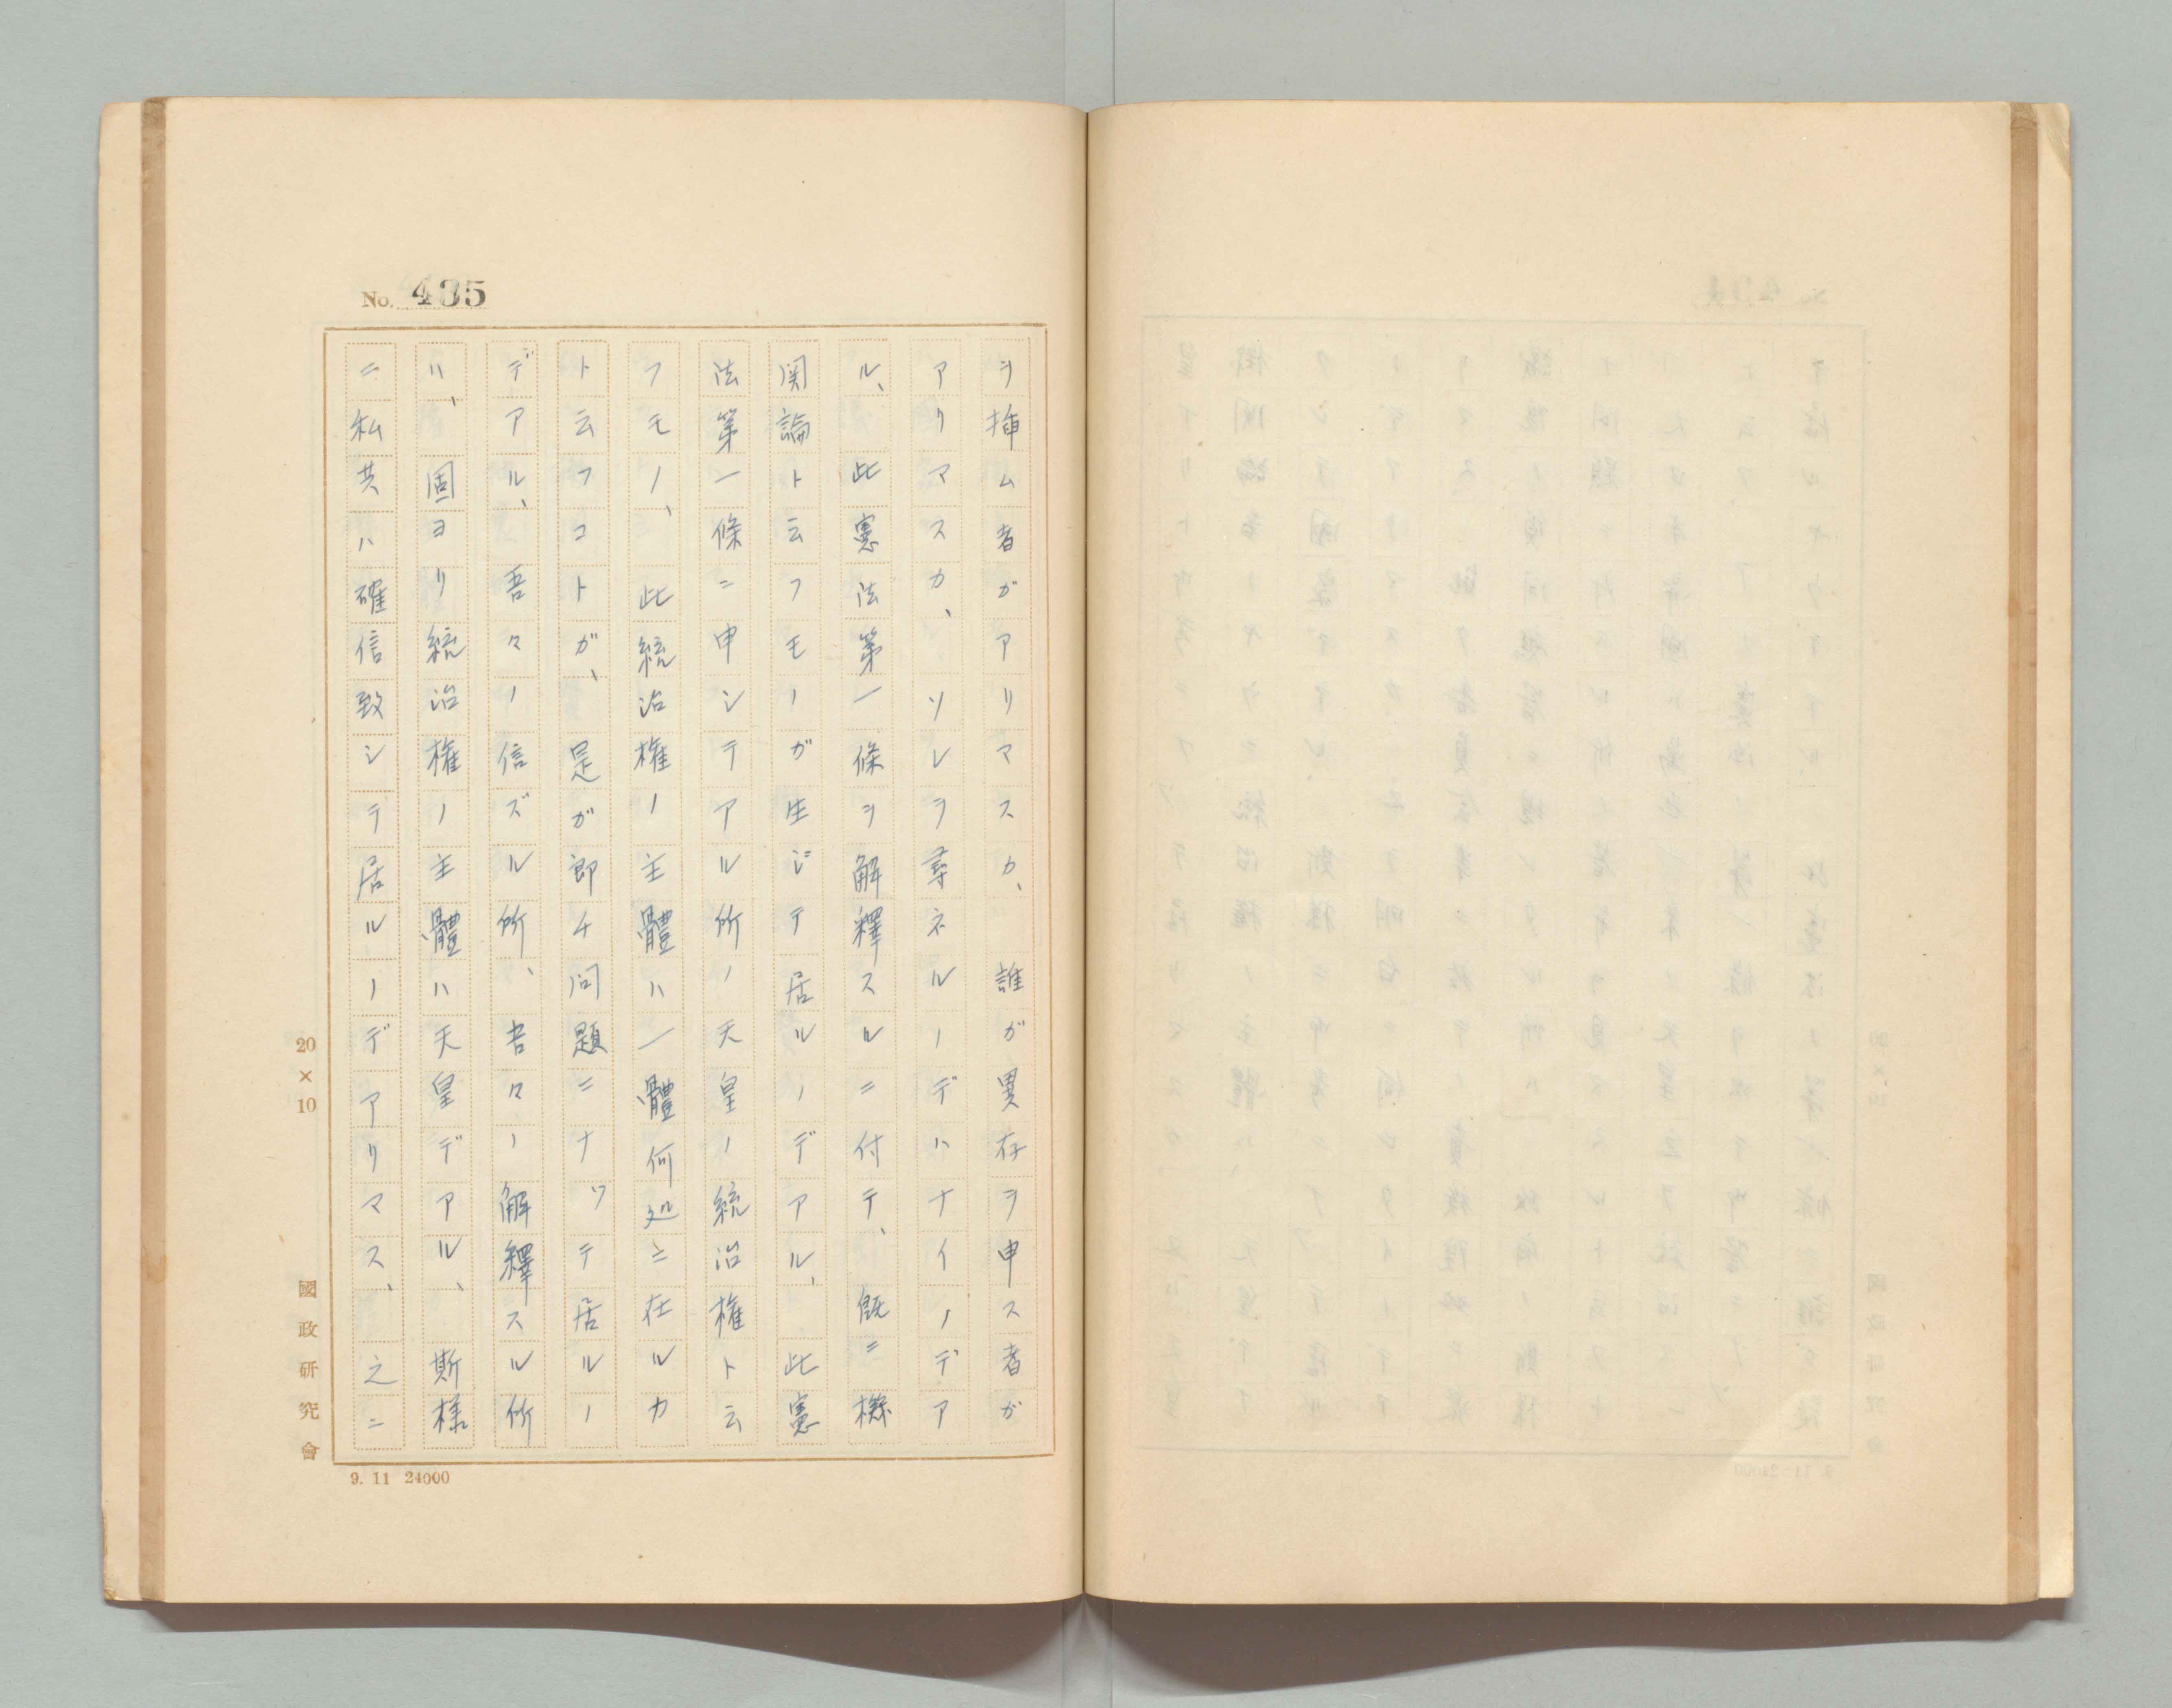 No. 435
ヲ挿ム者ガアリマスカ、誰ガ異存ヲ申ス者ガ
アリマスカ、ソレヲ尋ネルノデハナイノデア
ル、此憲法第一條ヲ解釋スルニ付テ、既ニ機
関論ト云フモノガ生ジテ居ルノデアル、此憲
法第一條ニ申シテアル所ノ天皇ノ統治權ト云
フモノ、此統治權ノ主體ハ一體何処ニ在ルカ
ト云フコトガ、是ガ即チ問題ニナツテ居ルノ
デアル、吾々ノ信ズル所、吾々ノ解釋スル所
ハ、固ヨリ統治權ノ主體ハ天皇デアル、斯様
ニ私共ハ確信致シテ居ルノデアリマス、之ニ
20×10
國政研究會
9. 11 24000